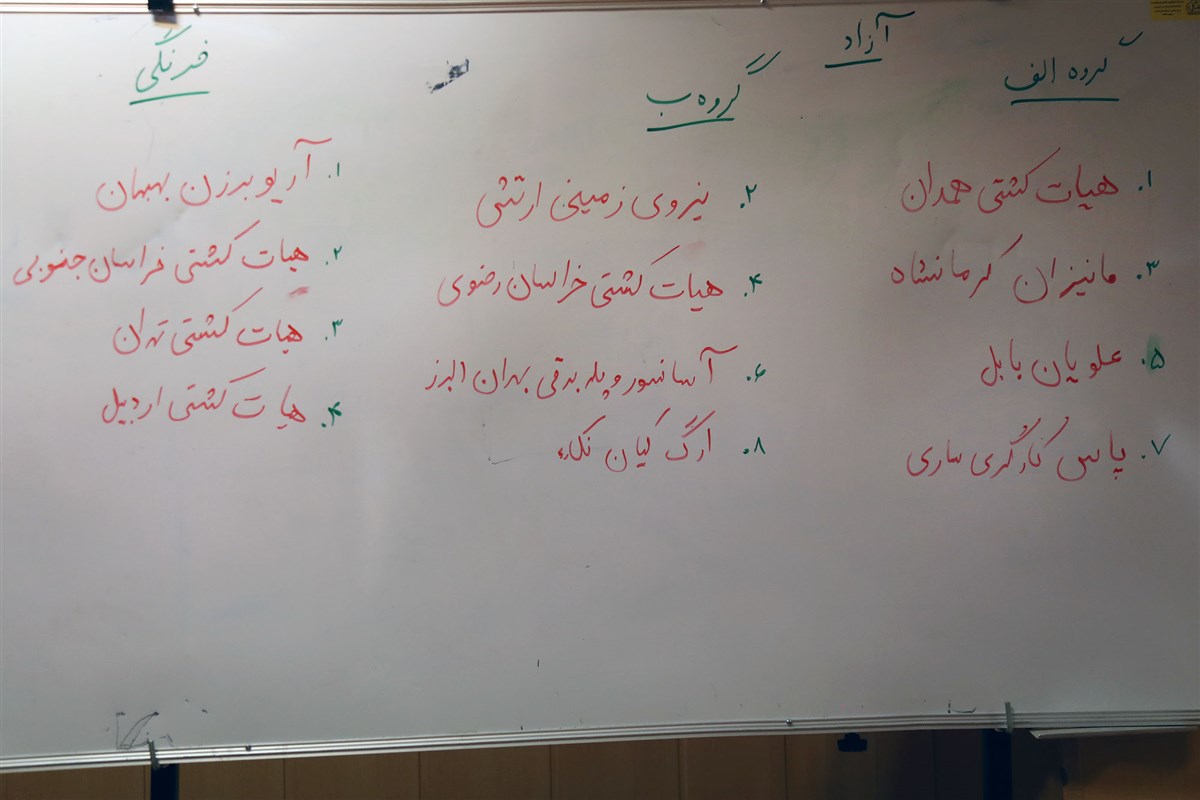 آزاد
گروه الف
۱. هیات کشتی همدان
۳. مانیزان کرمانشاه
۵. علویان بابل
۷. پاس کارگری ساری
گروه ب
۲. نیروی زمینی ارتش
۴. هیات کشتی خراسان رضوی
۶. آسانسور و پله برقی بهران البرز
۸. ارگ کیان نکاء
فرنگی
۱. آریو برزن بهبهان
۲. هیات کشتی خراسان جنوبی
۳. هیات کشتی تهران
۴. هیات کشتی اردبیل